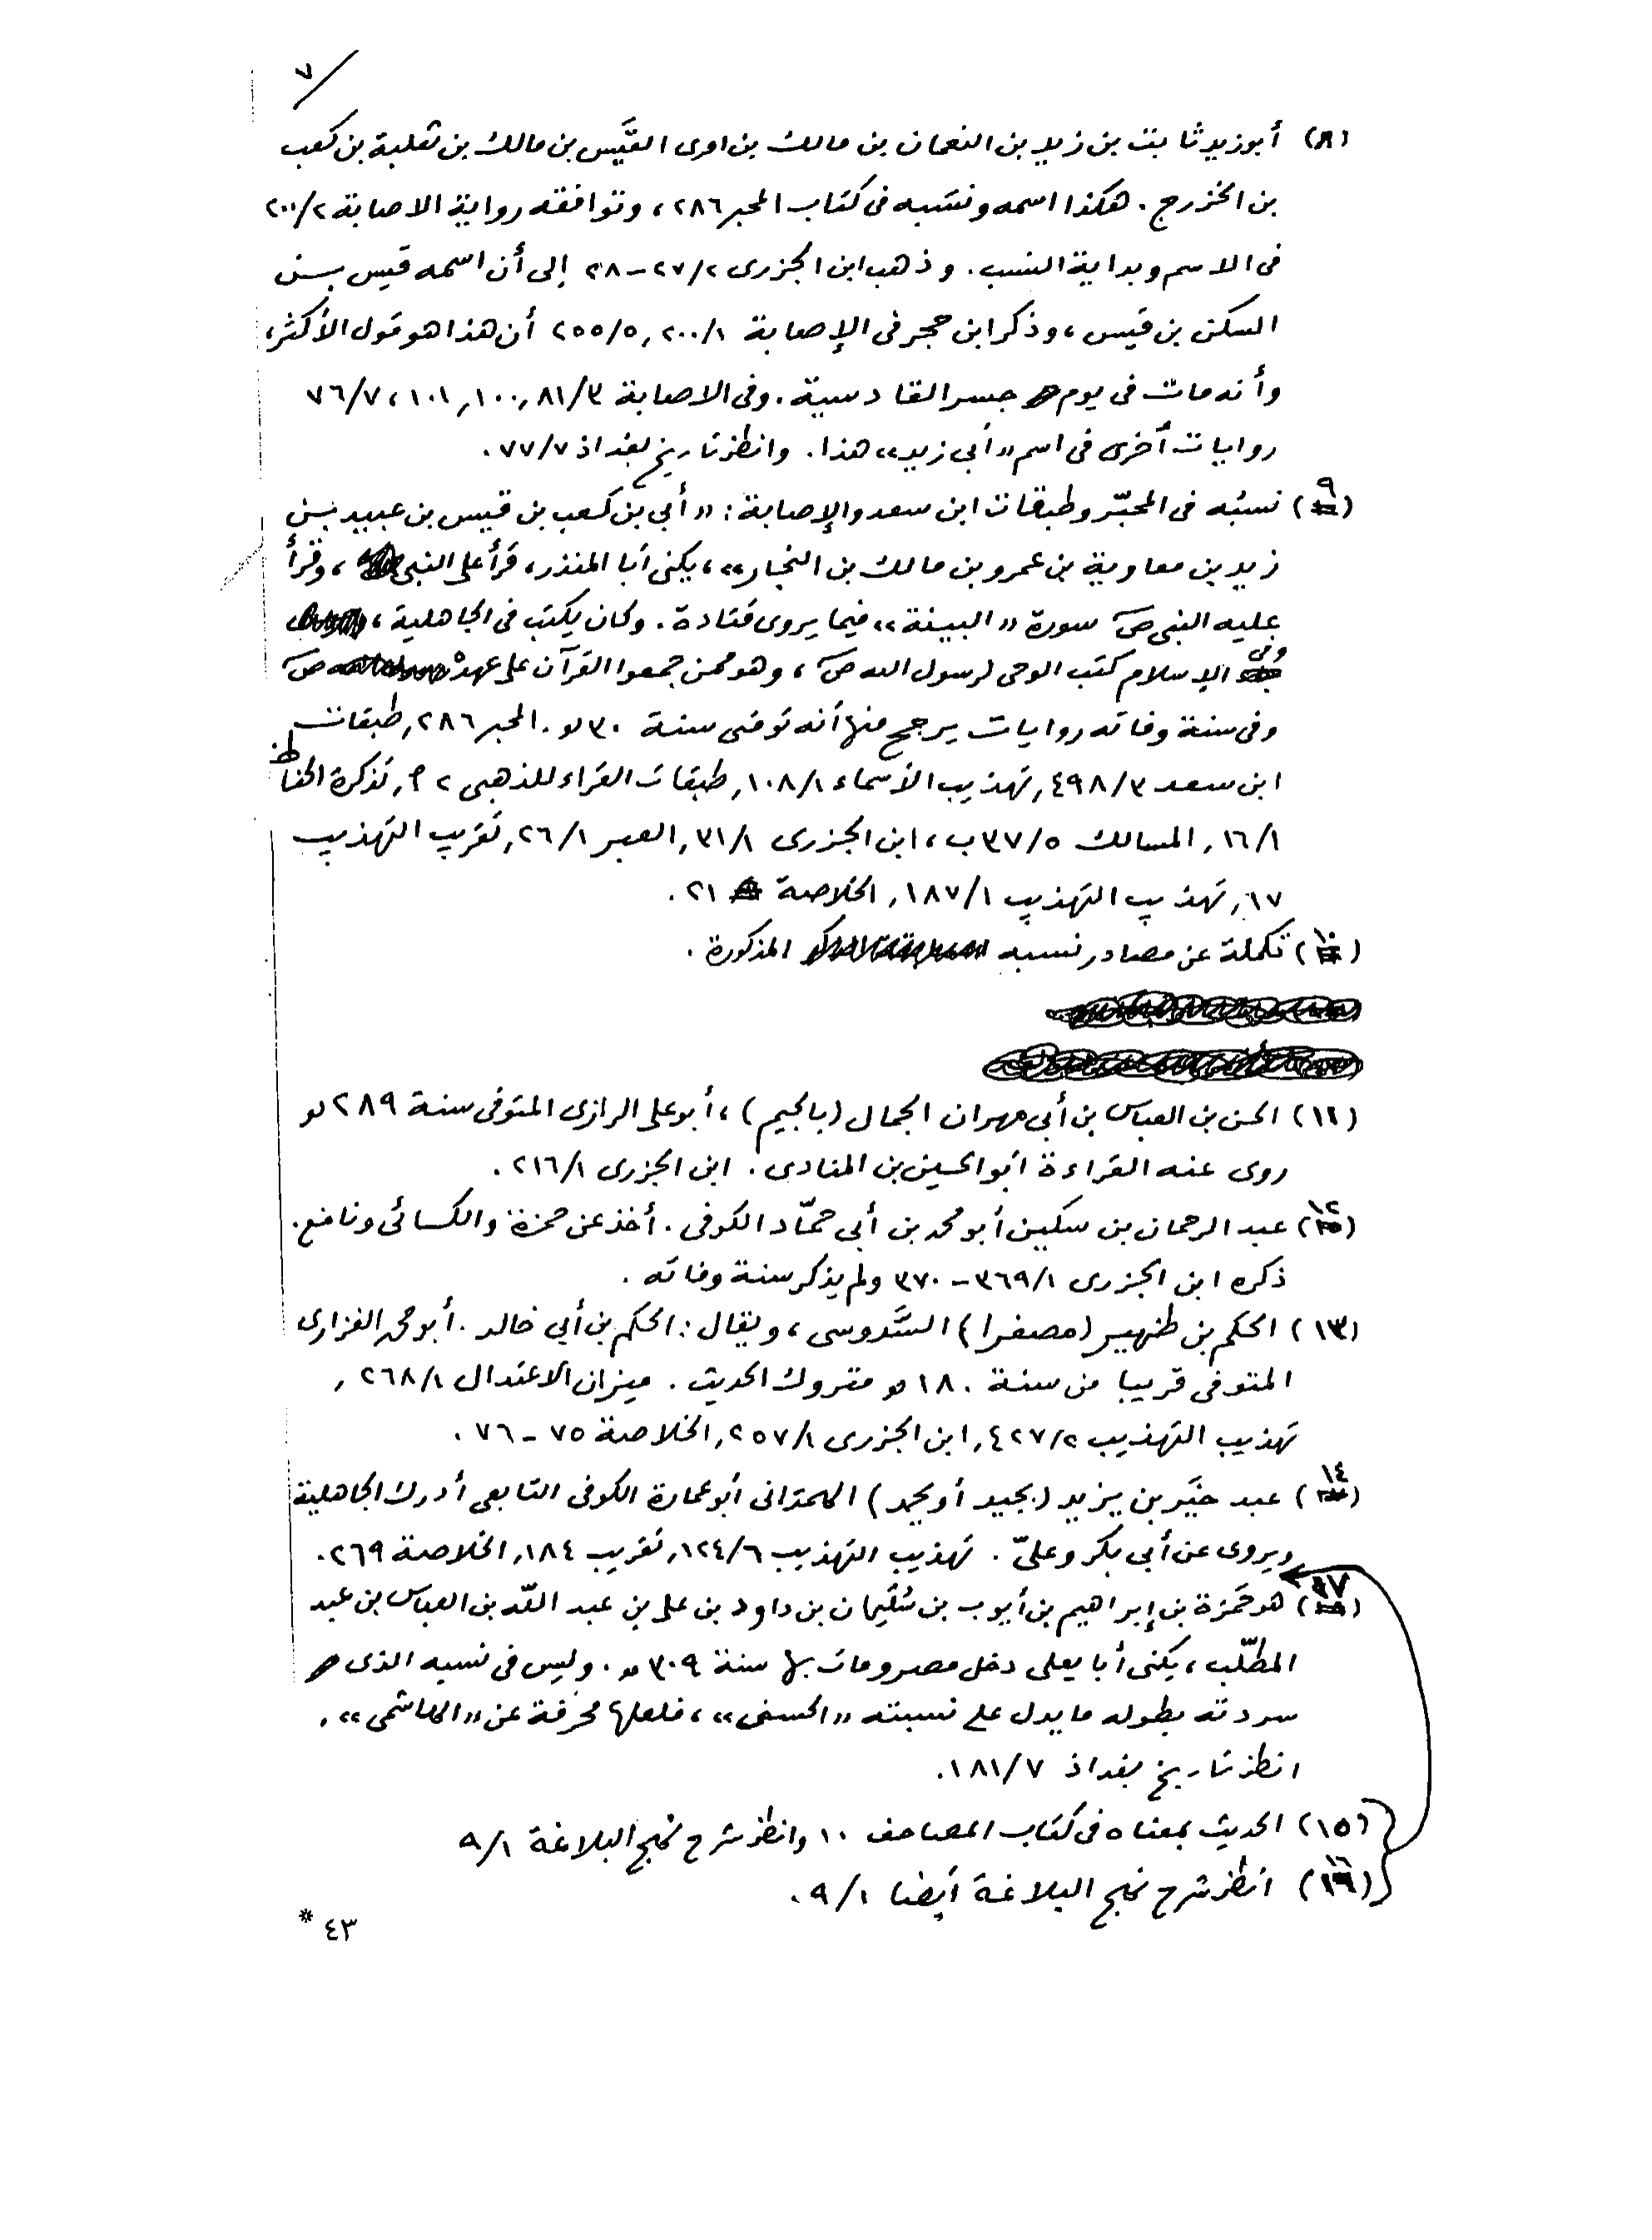 ٧/
(٨) أبو زيد ثابت بن زيد بن النعمان بن مالك بن امرى القَيْس بن مالك بن ثعلبة بن كعب
بن الخزرج . هكذا اسمه ونسَبه فى كتاب المحبر ٢٨٦ ، وتوافقه رواية الاصابة ٢٠٠/٢
فى الاسم وبداية النسب . وذهب ابن الجزرى ٢٧/٢ – ٢٨ إلى أن اسمه قيس بن
السكن بن قيس ، وذكر ابن حجر فى الإصابة ٢٠٠/١ , ٢٥٥/٥ أن هذا هو قول الأكثر ،
وأنه مات فى يوم جسر القادسية . وفى الاصابة ٨١/٣ , ١٠٠ , ١٠١ ، ٧٦/٧
روايات أخرى فى اسم « أبى زيد » هذا . وانظر تاريخ بغداذ ٧٧/٧ .
(٩) نسبُه فى المحبّر وطبقات ابن سعد والإصابة : « أبي بن كعب بن قيس بن عبيد بن
زيد بن معاوية بن عمرو بن مالك بن النجار » ، يكنى أبا المنذر ، قرأ على النبي ، وقرأ
عليه النبى صـ سورة « البينة » فيما يروى قتادة . وكان يكتب فى الجاهلية ،
وفى الإسلام كتب الوحى لرسول الله صـ ، وهو ممن جمعوا القرآن على عهده صـ
وفى سنة وفاته روايات يرجح منها أنه توفى سنة ٣٠ هـ . المحبر ٢٨٦ , طبقات
ابن سعد ٤٩٨/٣ , تهذيب الأسماء ١٠٨/١ , طبقات القراء للذهبى ٢ م , تذكرة الحفاظ
١٦/١ , المسالك ٣٧/٥ ب ، ابن الجزرى ٣١/١ , العبر ٢٦/١ , تقريب التهذيب
١٧ , تهذيب التهذيب ١٨٧/١ , الخلاصة ٢١ .
(١٠) تكملة عن مصادر نسبه المذكورة .
(١١) الحسن بن العباس بن أبي مهران الجمال (بالجيم) ، أبو على الرازى المتوفى سنة ٢٨٩ هـ
روى عنه القراءة ابو الحسين بن المنادى . ابن الجزرى ٢١٦/١ .
(١٢) عبد الرحمان بن سكين أبو محمد بن أبي حمّاد الكوفى . أخذ عن حمزة والكسائى ونافع .
ذكره ابن الجزرى ٣٦٩/١ – ٣٧٠ ولم يذكر سنة وفاته .
(١٣) الحكم بن ظهير (مصغرا) السَّدوسى ، ويقال : الحكم بن أبي خالد . أبو محمد الفزارى
المتوفى قريبا من سنة ١٨٠ هـ متروك الحديث . ميزان الاعتدال ٢٦٨/١ ,
تهذيب التهذيب ٤٢٧/٢ , ابن الجزرى ٢٥٧/١ , الخلاصة ٧٥ – ٧٦ .
(١٤) عبد خَيْر بن يزيد (بجيد أو يحمد) الهمدانى أبو عمارة الكوفى التابعى أدرك الجاهلية
ويروى عن أبي بكر وعلىّ . تهذيب التهذيب ١٢٤/٦ , تقريب ١٨٤ , الخلاصة ٢٦٩ .
(١٧) هو حَمزة بن إبراهيم بن أيوب بن سُليمان بن داود بن على بن عبد اللّه بن العباس بن عبد
المطّلب ، يكنى أبا يعلى دخل مصر ومات بها سنة ٣٠٩ هـ . وليس فى نسبه الذى
سردته بطوله ما يدل على نسبته « الحسنى » ، فلعلها محرفة عن « الهاشمى » .
انظر تاريخ بغداذ ١٨١/٧ .
(١٥) الحديث بمعناه فى كتاب المصاحف ١٠ وانظر شرح نهج البلاغة ٩/١
(١٦) انظر شرح نهج البلاغة أيضا ٩/١ .
٤٣ *